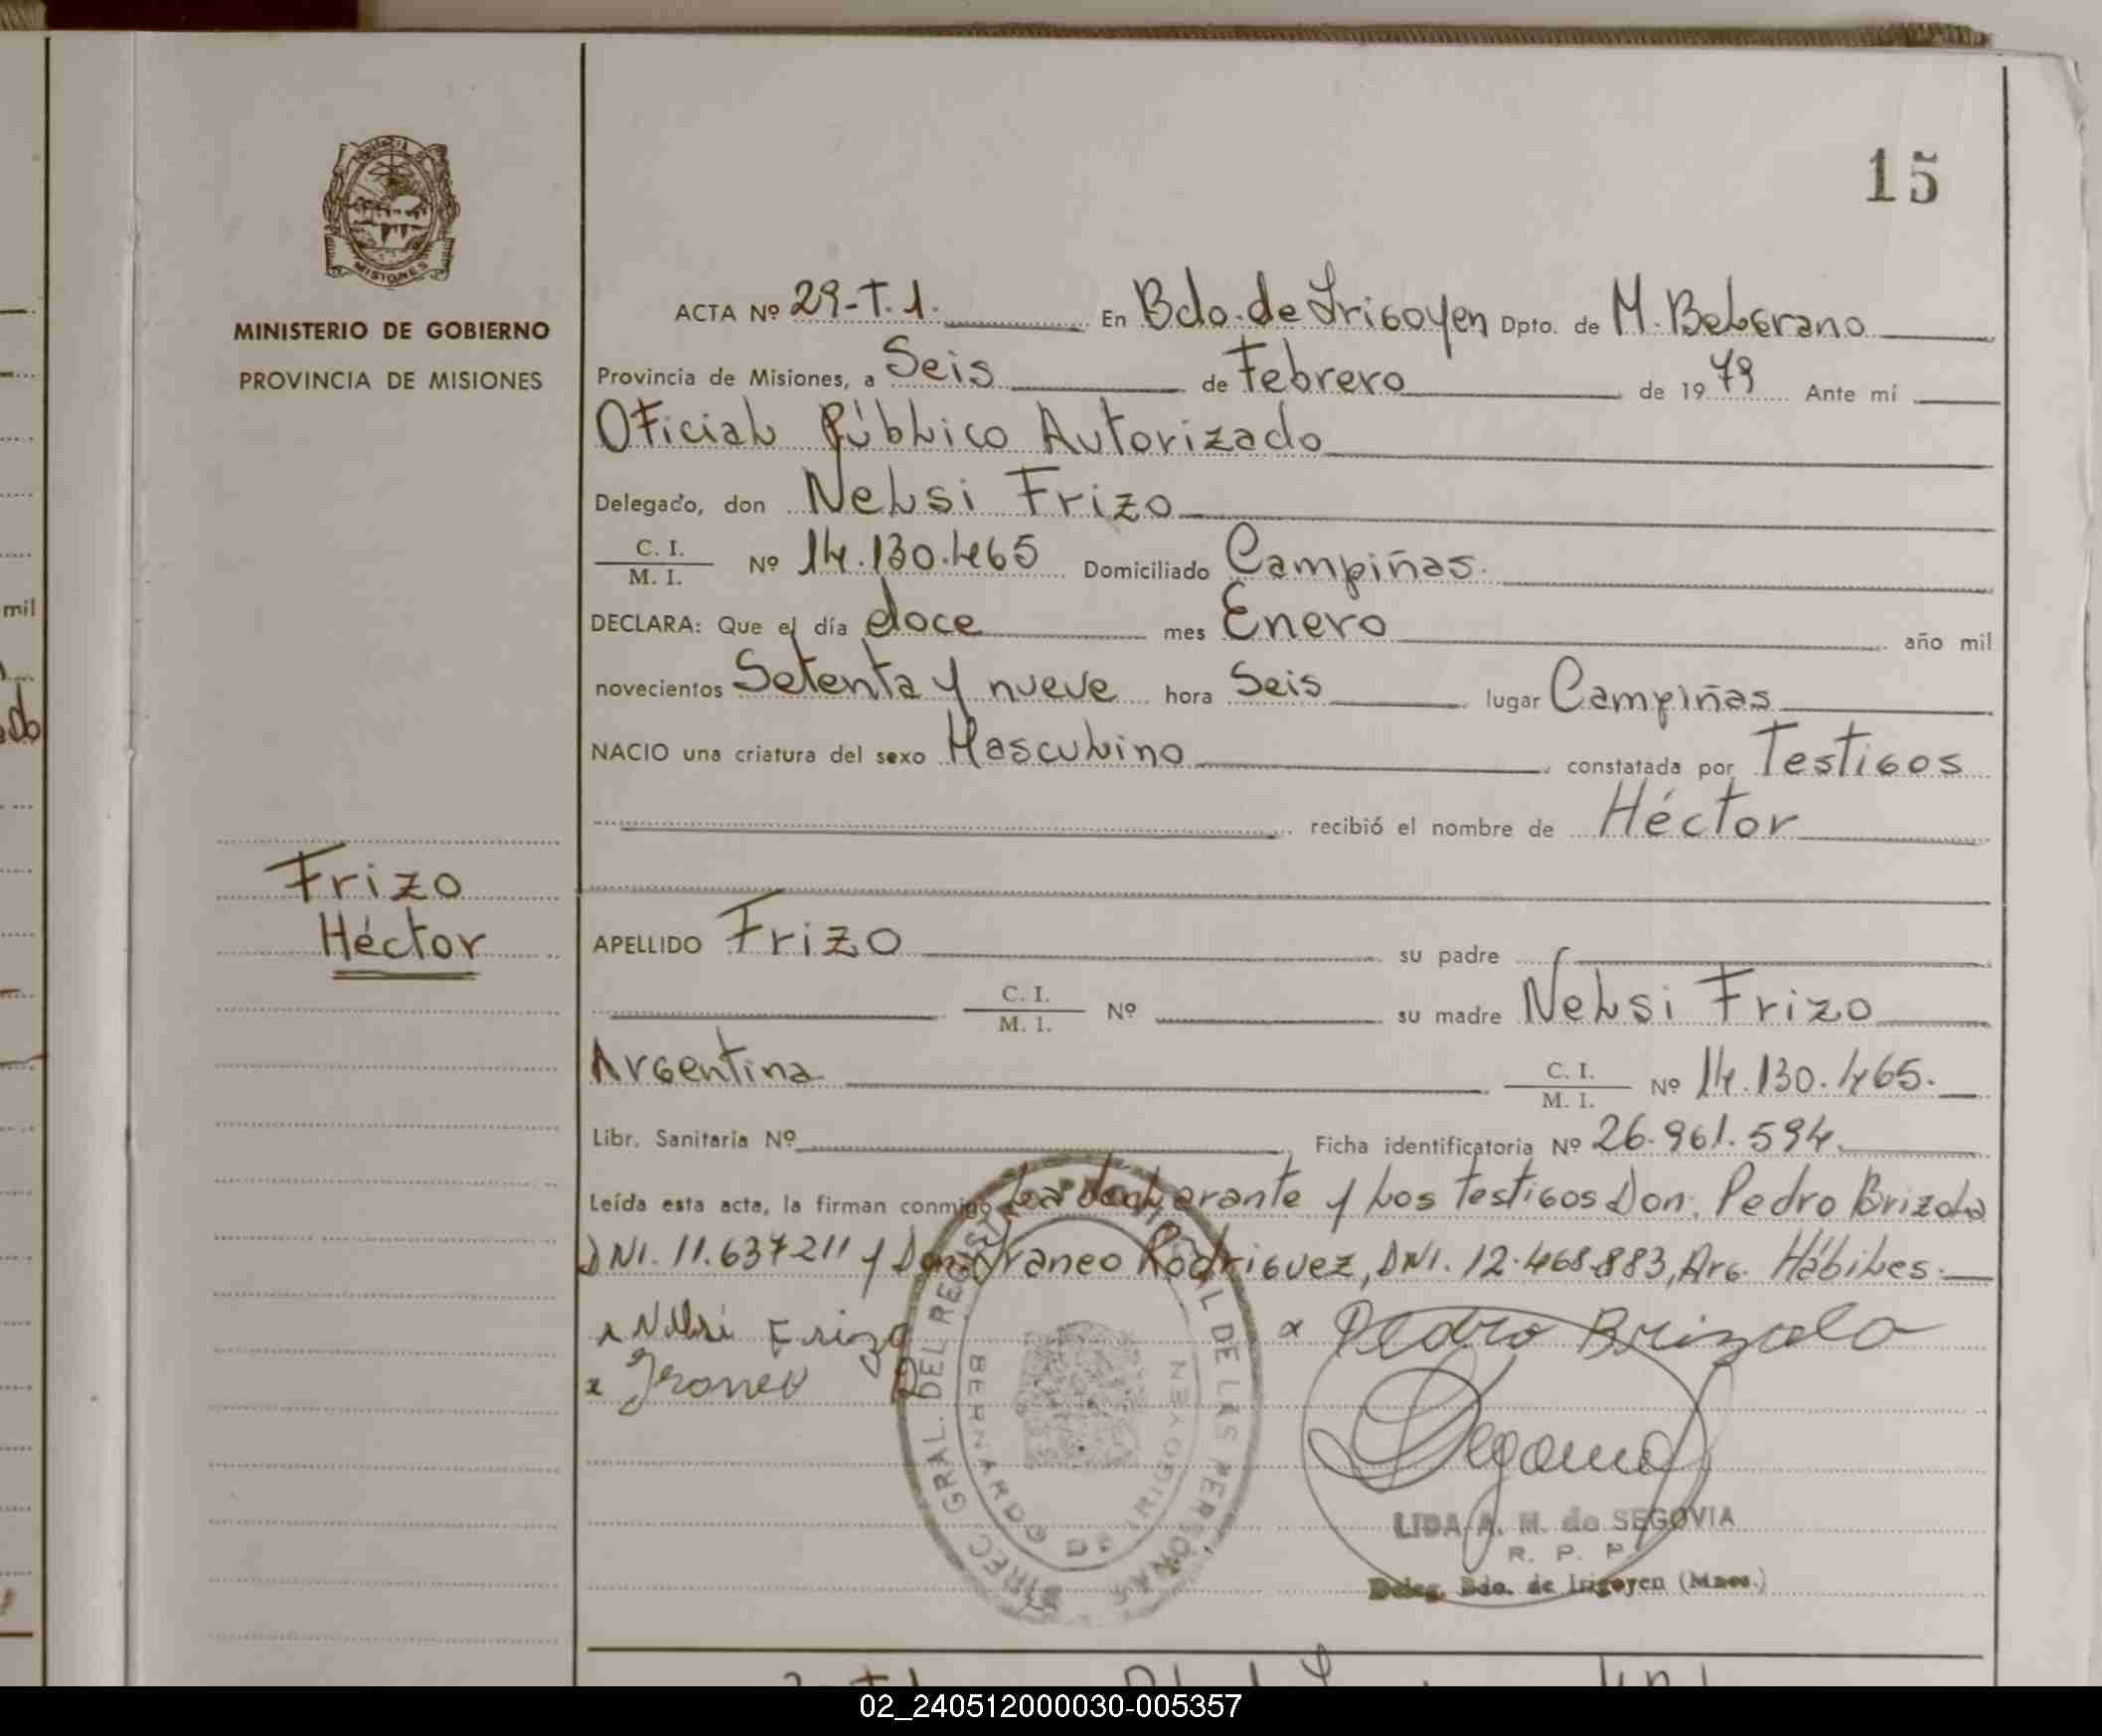 15
MISIONES
MINISTERIO DE GOBIERNO
PROVINCIA DE MISIONES
Frizo
Héctor
ACTA Nº 29-T.1. En Bdo. de Irigoyen Dpto. de M. Belgrano
Provincia de Misiones, a Seis de Febrero de 1979 Ante mí
Oficial Público Autorizado
Delegado, don Nelsi Frizo
C. I. / M. I. Nº 14.130.465 Domiciliado Campiñas.
DECLARA: Que el día doce mes Enero año mil
novecientos Setenta y nueve hora Seis lugar Campiñas
NACIO una criatura del sexo Masculino constatada por Testigos
recibió el nombre de Héctor
APELLIDO Frizo su padre
C. I. / M. I. Nº su madre Nelsi Frizo
Argentina C. I. / M. I. Nº 14.130.465.
Libr. Sanitaria Nº Ficha identificatoria Nº 26.961.594
Leída esta acta, la firman conmigo La declarante y los testigos Don. Pedro Brizola
DNI. 11.637211 y Don Iraneo Rodriguez, DNI. 12.468.883, Arg. Hábiles.
x Nelsi Frizo x Pedro Brizola
x Iraneo
DIREC GRAL. DEL REGISTRO DE LAS PERSONAS
BERNARDO DE IRIGOYEN
LIDA A. M. de SEGOVIA
R. P. P.
Deleg. Bdo. de Irigoyen (Mnes.)
mil
02_240512000030-005357